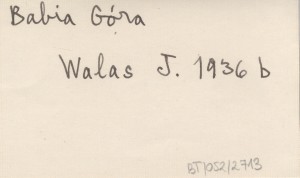 Babia Góra
Walas J. 1936 b
BT/052/2713